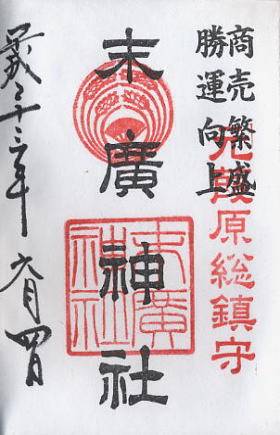 商売繁盛
勝運向上
元葭原総鎮守
末廣神社
末廣
神社
平成二十三年六月四日